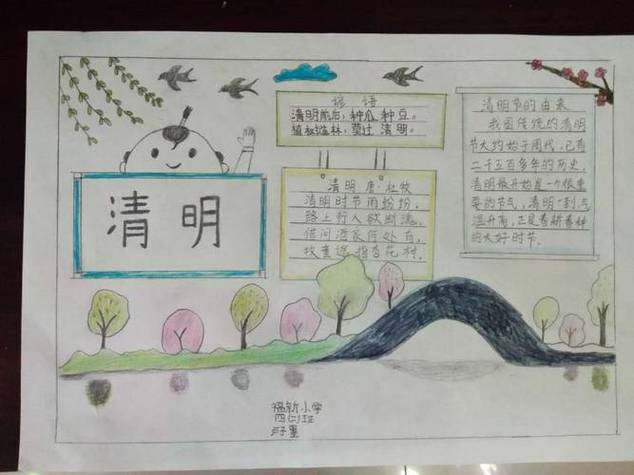 清明
谚语
清明前后,种瓜种豆。
植树造林,莫过清明。
清明 唐·杜牧
清明时节雨纷纷,
路上行人欲断魂。
借问酒家何处有,
牧童遥指杏花村。
清明节的由来
我国传统的清明
节大约始于周代,已有
二千五百多年的历史。
清明最开始是一个很重
要的节气,清明一到,气
温升高,正是春耕春种
的大好时节。
福新小学